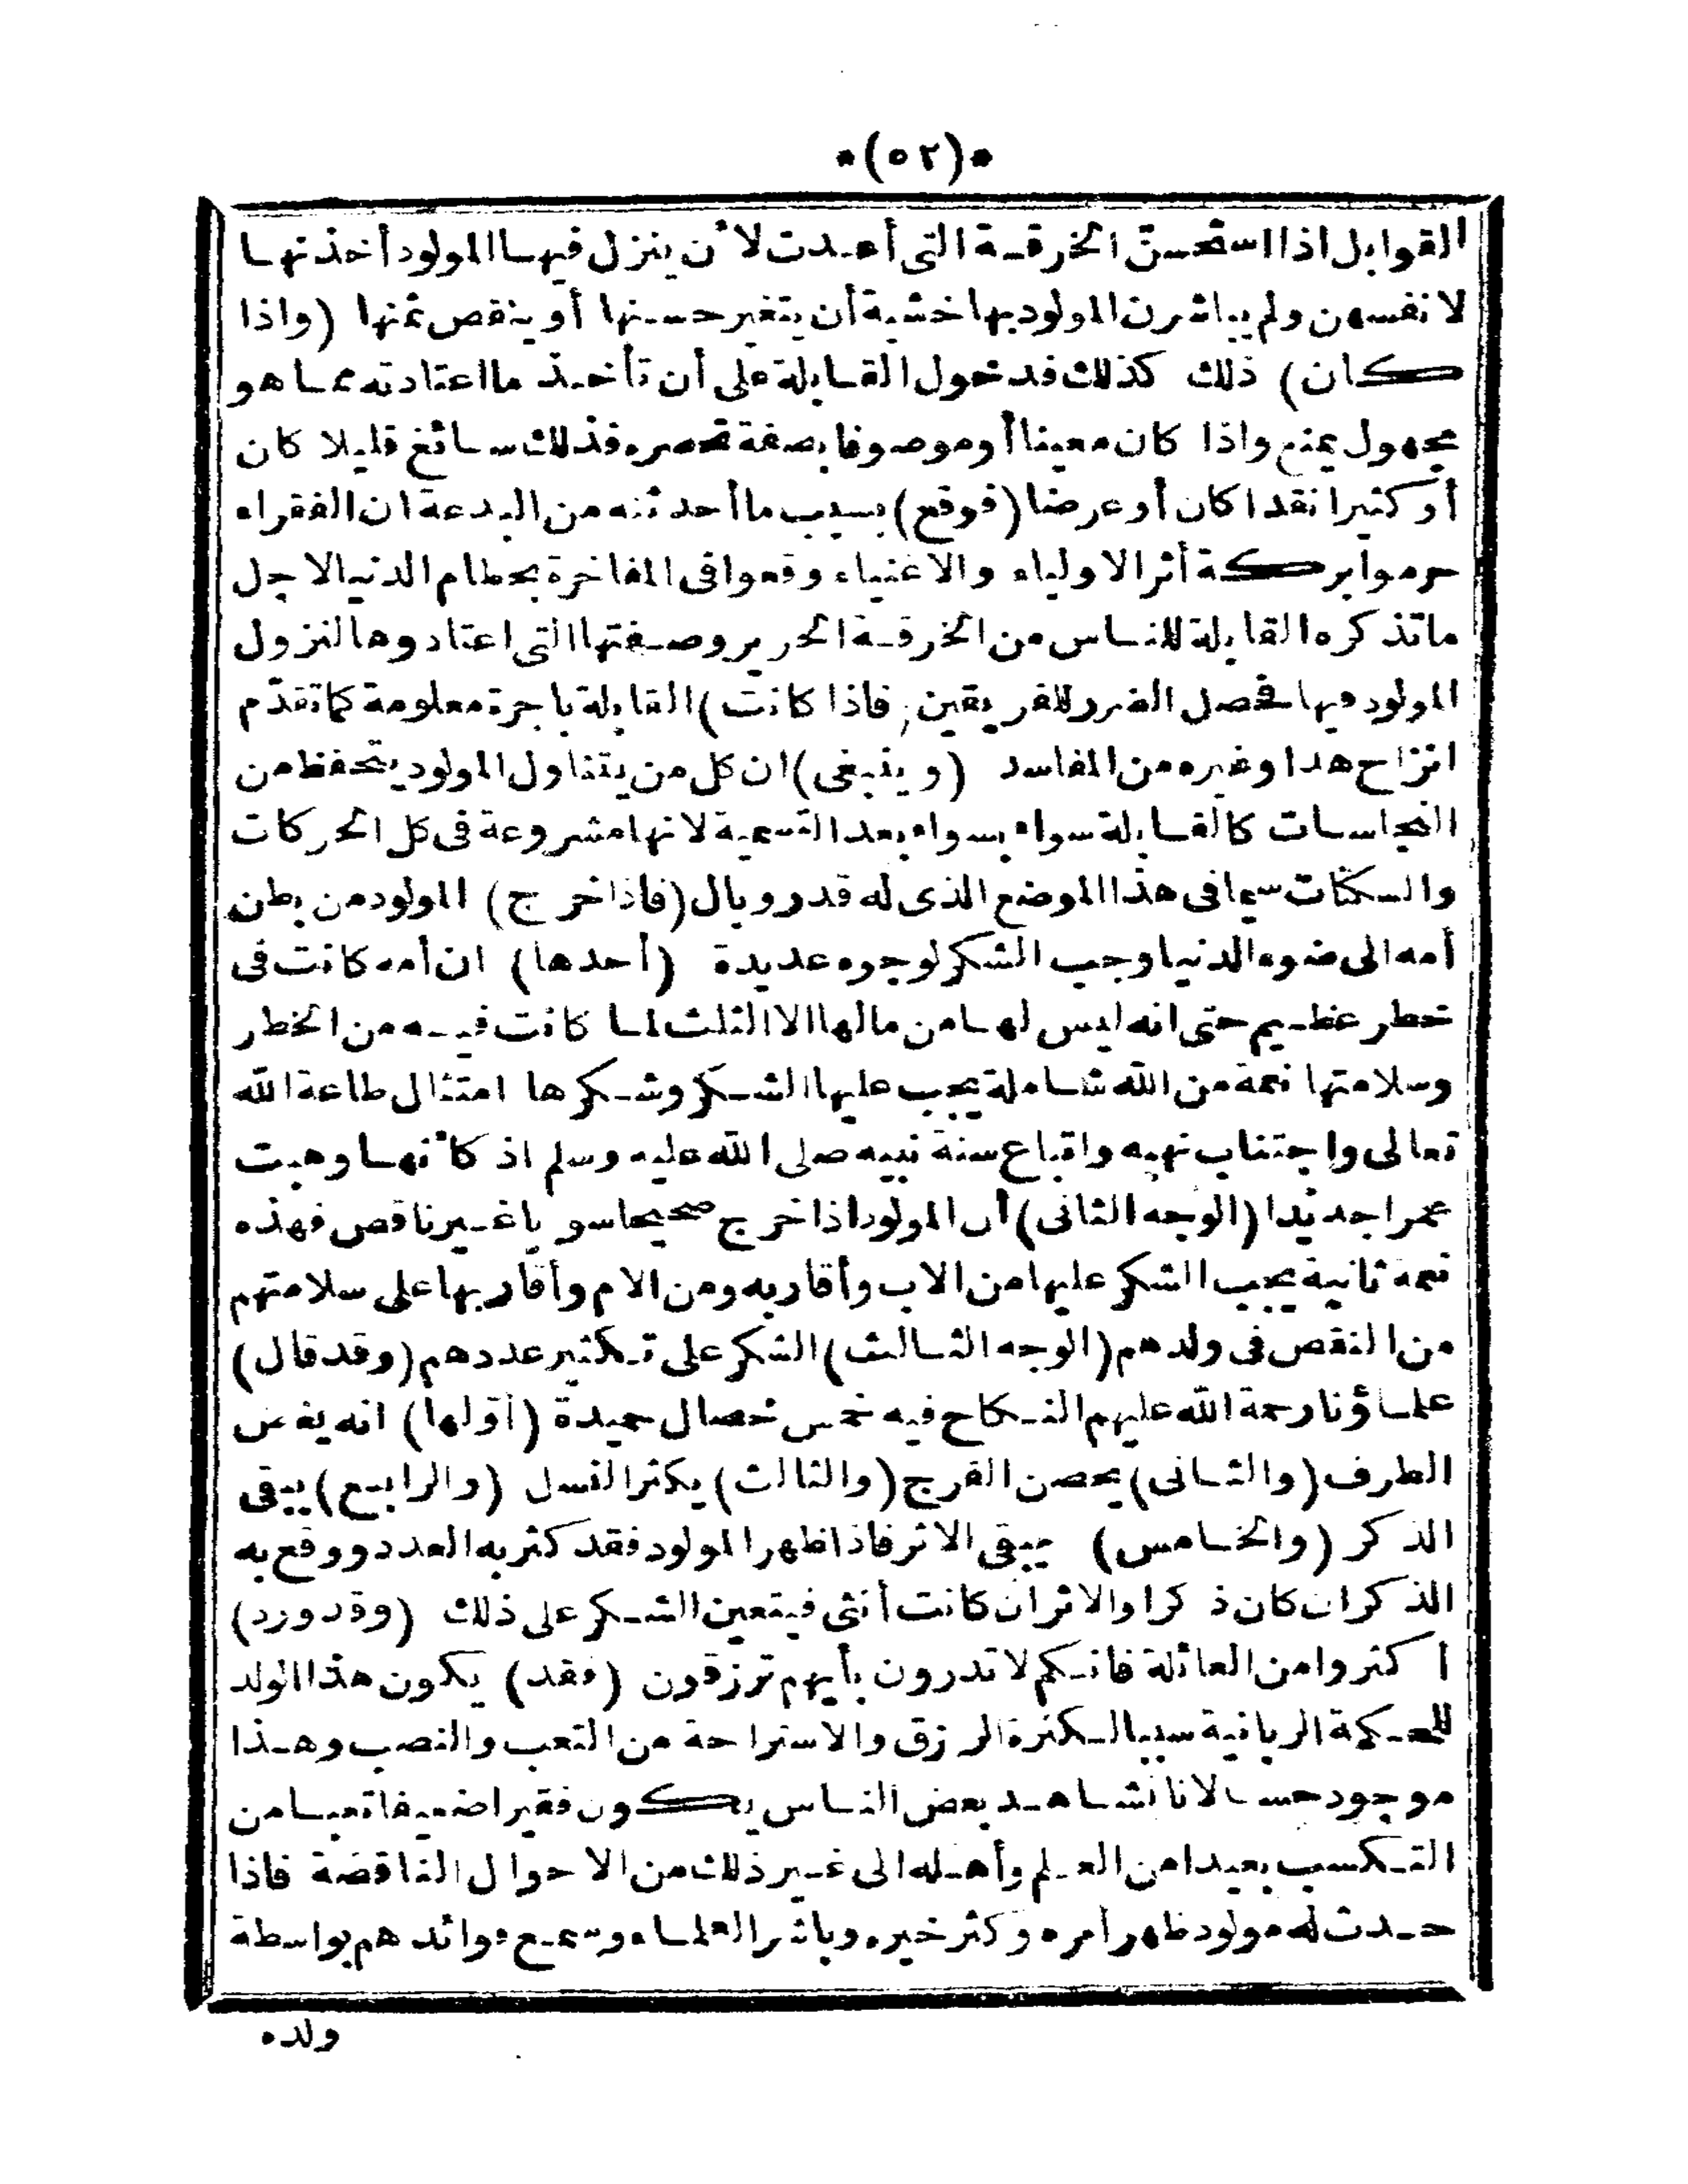 *(٥٢)*
القوابل اذا استحسن الخرقة التى أعدت لأن ينزل فيها المولود أخذنها
لانفسهن ولم يباشرن المولود بها خشية أن يتغير حسنها أو ينقص ثمنها (واذا
كان) ذلك كذلك فدخول القابلة على أن تأخذ ما اعتادته مما هو
مجهول يمنع واذا كان معينا أوموصوفا بصفة تحصره فذلك سائغ قليلا كان
أوكثيرا نقدا كان أوعرضا (فوقع) بسبب ما أحدثنه من البدعة ان الفقراء
حرموا بركة أثر الاولياء والاغنياء وقعوا فى المفاخرة بحطام الدنيا لاجل
ما تذكره القابلة للناس من الخرقة الحرير وصفتها التى اعتادوها لنزول
المولود فيها فحصل الضرر للفريقين (فاذا كانت) القابلة باجرة معلومة كما تقدّم
انزاح هذا وغيره من المفاسد (وينبغى) ان كل من يتناول المولود يتحفظ من
النجاسات كالقابلة سواء بسواء بعد التسمية لانها مشروعة فى كل الحركات
والسكنات سيما فى هذا الموضع الذى له قدر وبال (فاذا خرج) المولود من بطن
أمه الى ضوء الدنيا وجب الشكر لوجوه عديدة (أحدها) ان أمه كانت فى
خطر عظيم حتى انه ليس لها من مالها الا الثلث لما كانت فيه من الخطر
وسلامتها نعمة من الله شاملة يجب عليها الشكر وشكرها امتثال طاعة الله
تعالى واجتناب نهيه واتباع سنة نبيه صلى الله عليه وسلم اذ كأنها وهبت
عمرا جديدا (الوجه الثانى) أن المولود اذا خرج صحيحا سويا غير ناقص فهذه
نعمة ثانية يجب الشكر عليها من الاب وأقاربه ومن الام وأقاربها على سلامتهم
من النقص فى ولدهم (الوجه الثالث) الشكر على تكثير عددهم (وقد قال)
علماؤنا رحمة الله عليهم النكاح فيه خمس خصال حميدة (أوّلها) انه يغض
الطرف (والثانى) يحصن الفرج (والثالث) يكثر النسل (والرابع) يبقى
الذكر (والخامس) يبقى الاثر فاذا ظهر المولود فقد كثر به العدد ووقع به
الذكر ان كان ذكرا والاثر ان كانت أنثى فيتعين الشكر على ذلك (وقد ورد)
أكثروا من العائلة فانكم لا تدرون بأيهم ترزقون (فقد) يكون هذا الولد
للحكمة الربانية سببا لكثرة الرزق والاستراحة من التعب والنصب وهذا
موجود حسا لانا نشاهد بعض الناس يكون فقيرا ضعيفا تعبا من
التكسب بعيدا من العلم وأهله الى غير ذلك من الاحوال الناقصة فاذا
حدث له مولود ظهر أمره وكثر خيره وباشر العلماء وسمع فوائدهم بواسطة
ولده